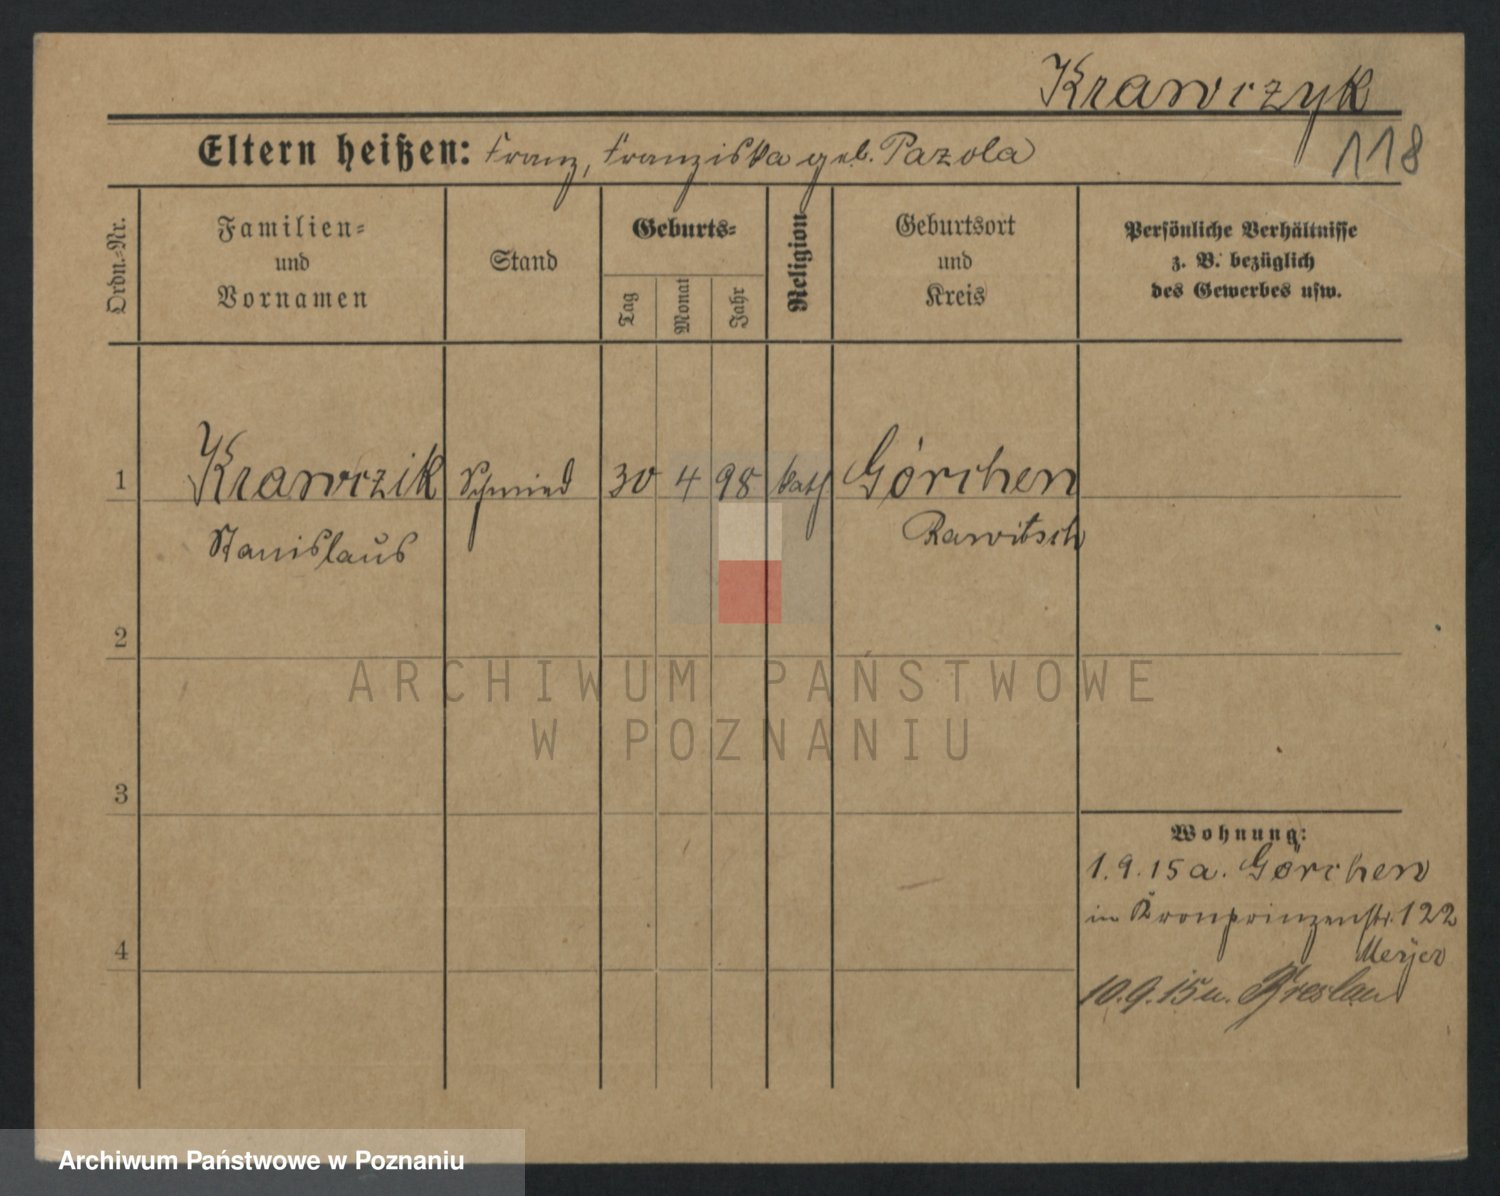 Krawczyk
118
Eltern heißen: Franz, Franziska geb. Pazola
Ordn.-Nr.
Familien-
und
Vornamen
Stand
Geburts-
Tag
Monat
Jahr
Religion
Geburtsort
und
Kreis
Persönliche Verhältnisse
z. B. bezüglich
des Gewerbes usw.
1 Krawczik Schmied 30 4 98 kath Görchen
Stanislaus Rawitsch
2
ARCHIWUM PAŃSTWOWE
W POZNANIU
3
Wohnung:
1.9.15 a. Görchen
in Kronprinzenstr. 122
4
Meyer
10.9.15 u. Breslau
Archiwum Państwowe w Poznaniu